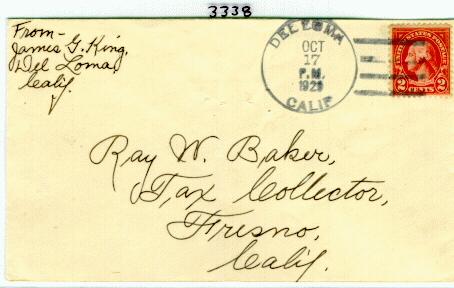 3338
From-
James G. King,
Del Loma,
Calif.
DEL LOMA
OCT
17
P.M.
CALIF
UNITED STATES POSTAGE
2 CENTS 2
Ray W. Baker,
Tax Collector,
Fresno,
Calif.